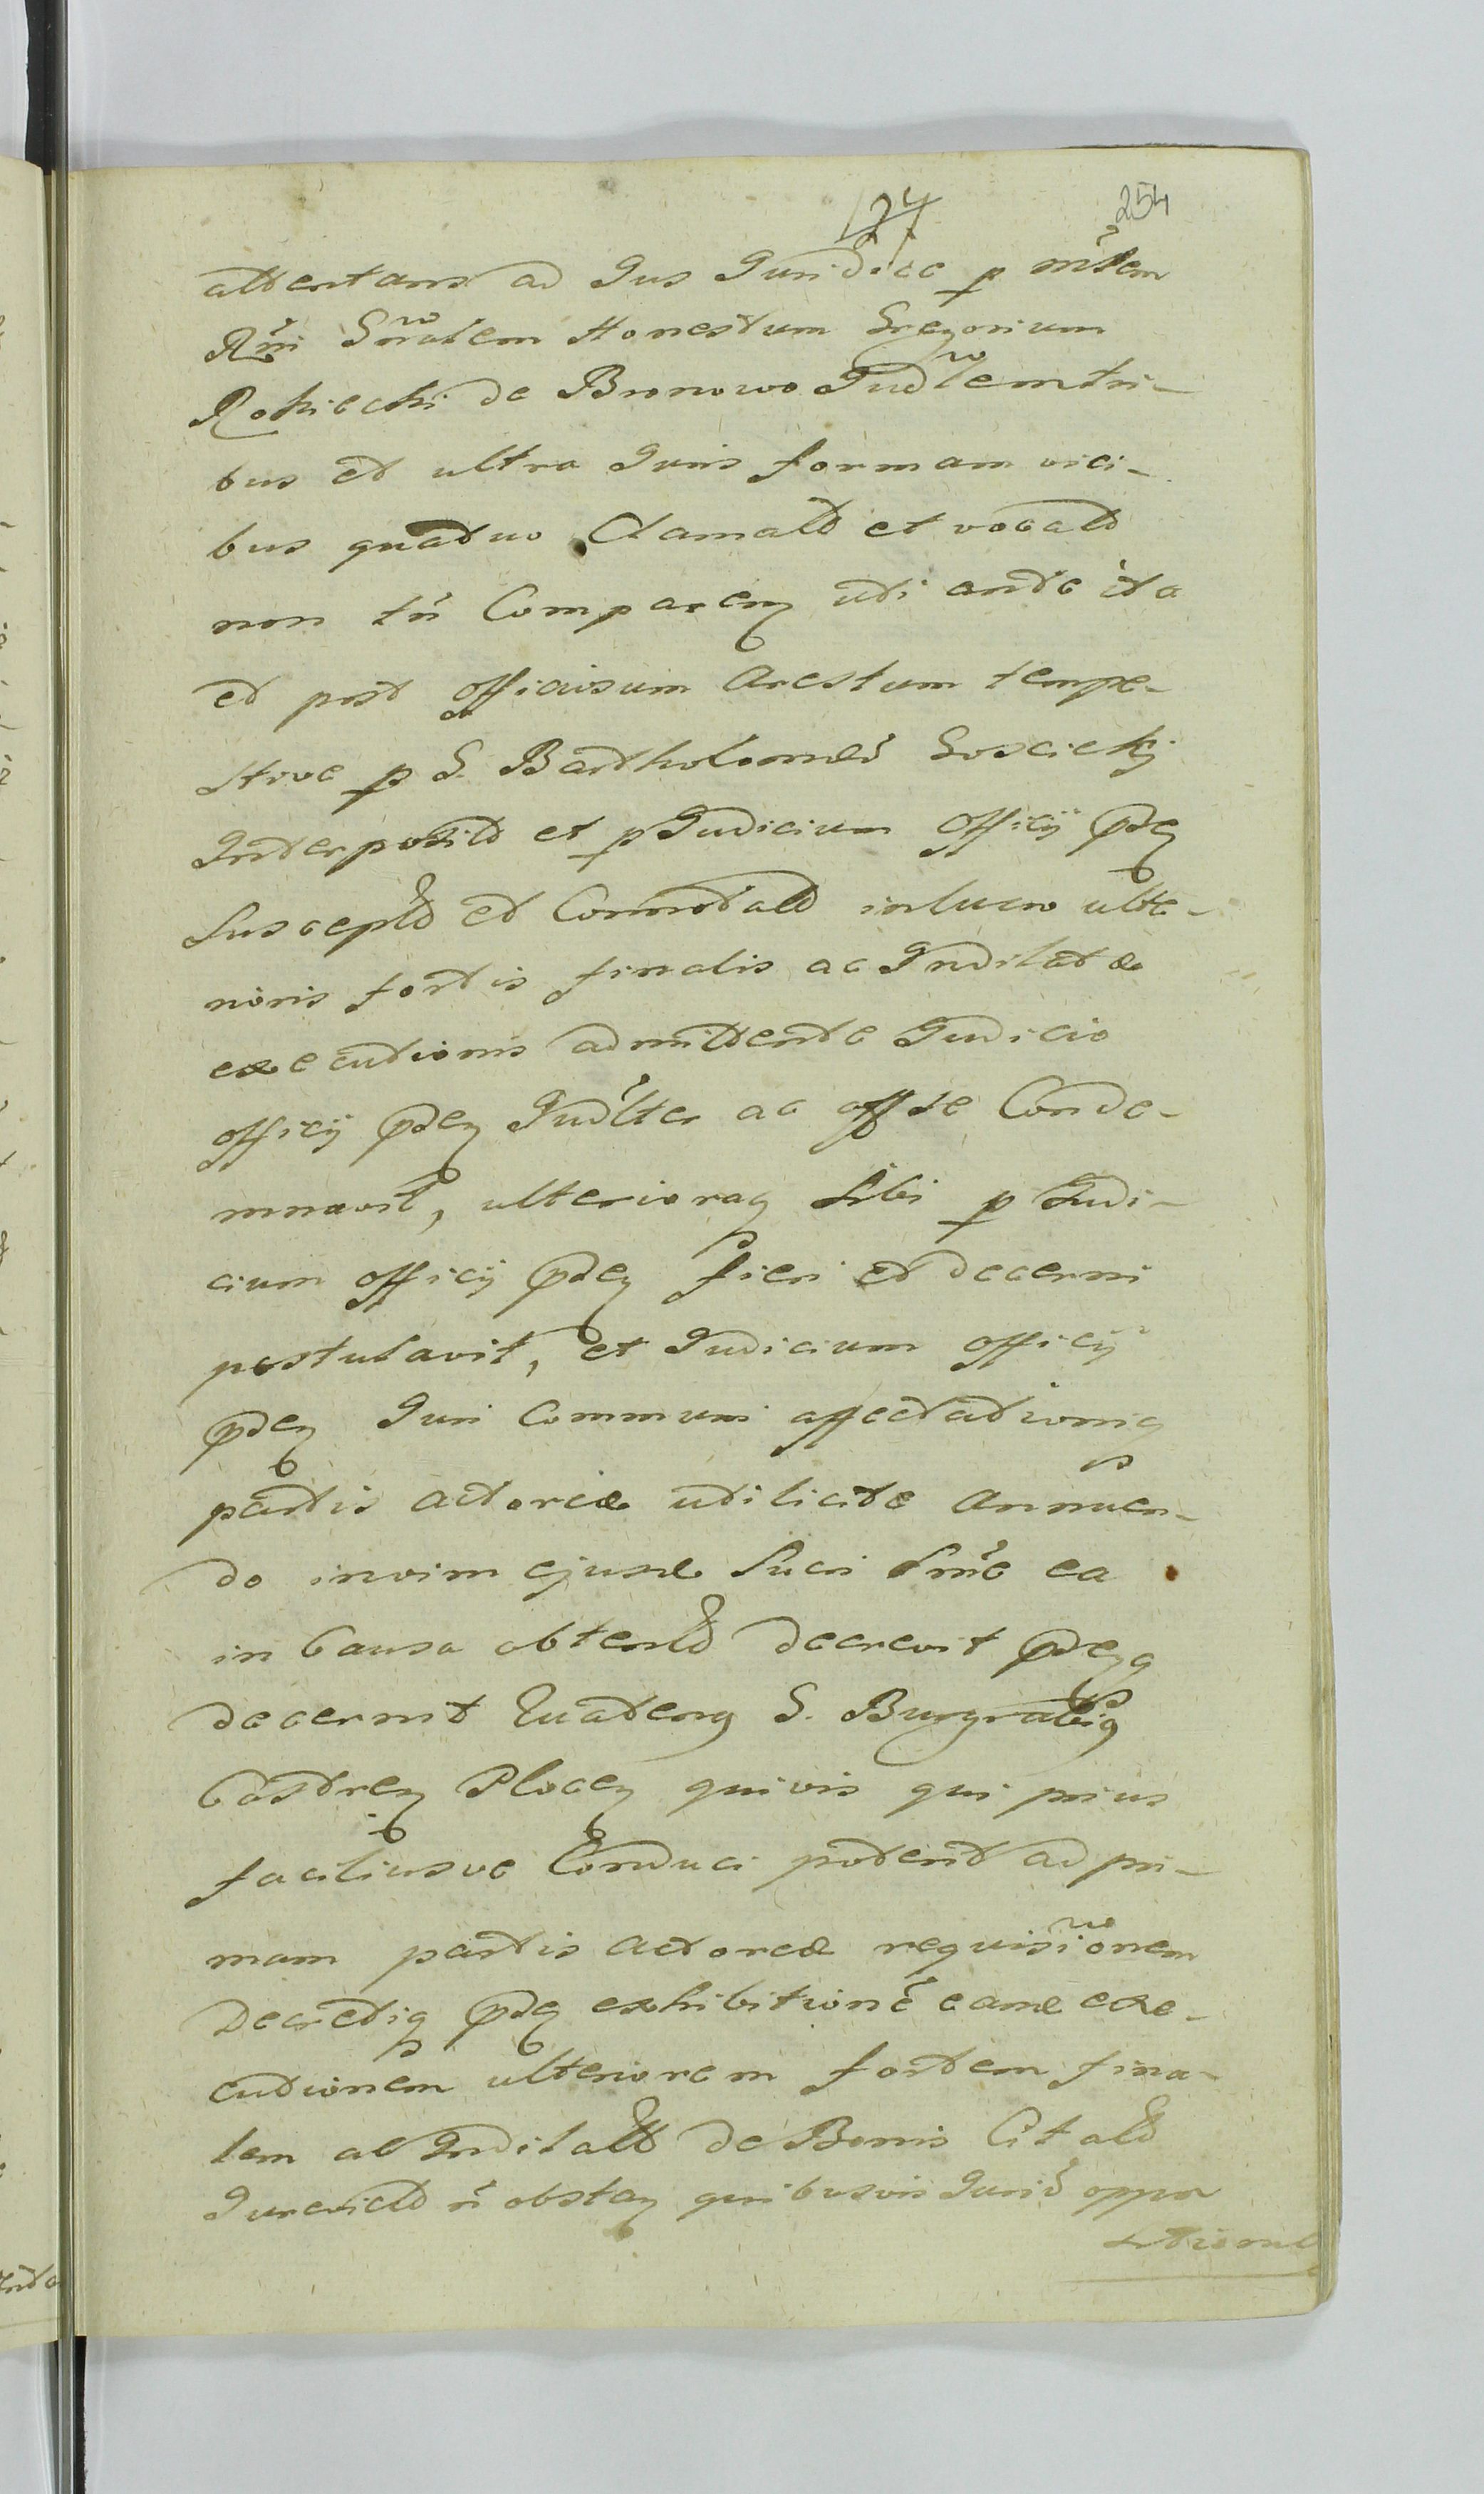 127 254
attentans ad Jus Juridice p mrlem
Rńi Gnralem Honestum Gregorium
Rokicki de Bronowo Judlem tri-
bus et ultra Juris formam vici-
bus quatuo Clamatt et vocatt
non tń Comparen uti ante ita
et post officiosum arestum tempe-
stive p G. Bartholomeŭ Goscicki
Interpositt et p Judicium officij pden
susceptt et Connotatt in lucro ulte-
rioris fortis finalis ac Indilatæ
executionis admittente Judicio
officij pden Judlter ac offse Conde-
mnavit, ulterioraq sibi p Judi-
cium officij pden fieri et decerni
postulavit, et Judicium officij
pden Juri Communi affectationiq
partis actoreæ utilitate annuen-
do in vim ejusd lucri sńe ea
in Causa obtentt decrevit pdenq
decernit Quatenq G. Burgrabiq
Castren Plocen quivis qui prius
faciliusve Conduci poterit ad pri-
mam partis actoreæ requisiionem
Decretiq pden exhibitionē eamd exe-
cutionem ulteriorem fortem fina-
lem ac Indilatt de Bonis Citatt
Jurevictt ń obstan quibusvis Jurid oppo